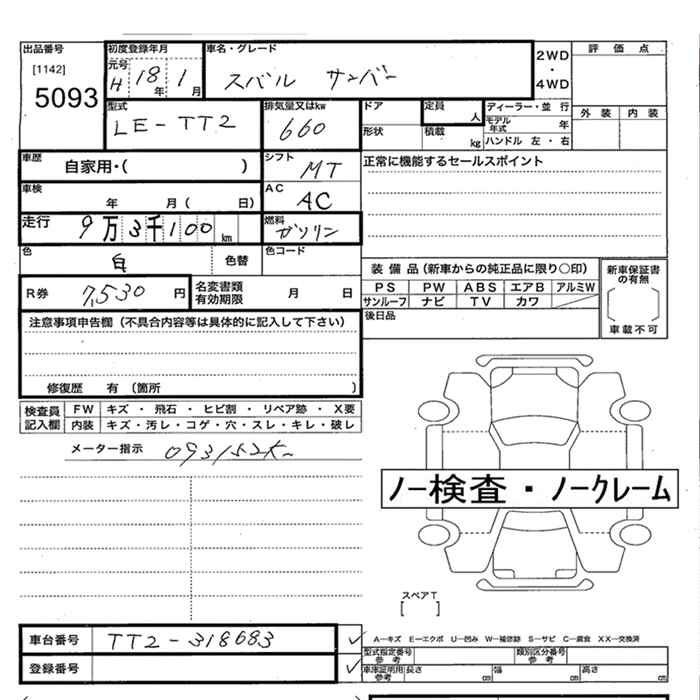 出品番号
[1142]
5093
初度登録年月
元号 H 18 年 1 月
車名・グレード
スバル サンバー
2WD
・
4WD
評価点
外装 内装
型式
LE-TT2
排気量又はkw
660
ドア
形状
定員 人
積載 kg
ディーラー・並行
モデル年式 年
ハンドル 左・右
車歴
自家用・( )
シフト
MT
正常に機能するセールスポイント
車検
年 月( 日)
AC
AC
走行
9万3千100km
燃料
ガソリン
色
白
色替
色コード
R券 7,530 円
名変書類有効期限 月 日
装備品(新車からの純正品に限り○印)
PS PW ABS エアB アルミW
サンルーフ ナビ TV カワ
新車保証書の有無
[ ]
車載不可
後日品
注意事項申告欄(不具合内容等は具体的に記入して下さい)
修復歴 有 (箇所 )
検査員記入欄
FW キズ・飛石・ヒビ割・リペア跡・X要
内装 キズ・汚レ・コゲ・穴・スレ・キレ・破レ
メーター指示 093152K
ノー検査・ノークレーム
スペアT
[ ]
車台番号 TT2-318683 ✓
登録番号 ✓
A―キズ E―エクボ U―凹み W―補修跡 S―サビ C―腐食 XX―交換済
型式指定番号 参考
類別区分番号 参考
車庫証明用 参考
長さ cm 幅 cm 高さ cm